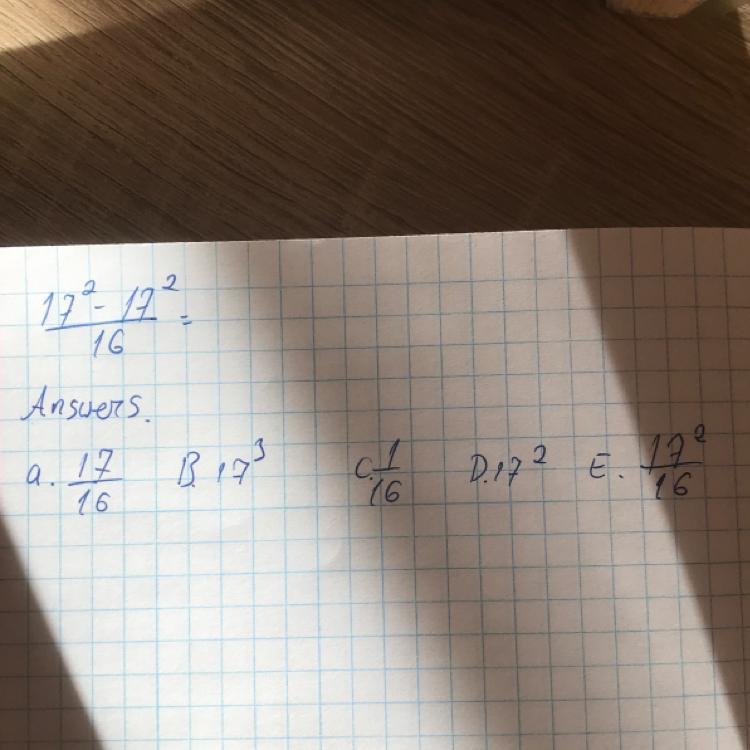 17² - 17² / 16 =
Answers.
a. 17/16 B. 17³ C. 1/16 D. 17² E. 17²/16